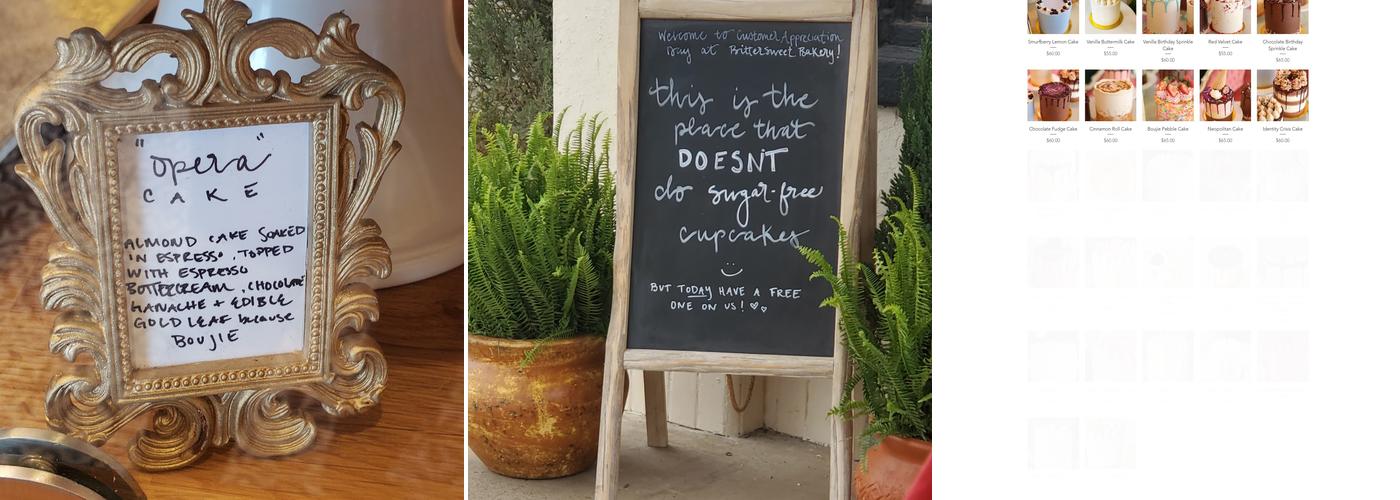 "opera"
CAKE
ALMOND CAKE SOAKED
IN ESPRESSO, TOPPED
WITH ESPRESSO
BUTTERCREAM, CHOCOLATE
GANACHE + EDIBLE
GOLD LEAF because
BOUJIE
Welcome to Customer Appreciation
Day at BitterSweet Bakery!
this is the
place that
DOESNT
do sugar-free
cupcakes
BUT TODAY HAVE A FREE
ONE ON US!
Smurfberry Lemon Cake
$60.00
Vanilla Buttermilk Cake
$55.00
Vanilla Birthday Sprinkle
Cake
$60.00
Red Velvet Cake
$55.00
Chocolate Birthday
Sprinkle Cake
$65.00
Chocolate Fudge Cake
$60.00
Cinnamon Roll Cake
$60.00
Boujie Pebble Cake
$65.00
Neopolitan Cake
$65.00
Identity Crisis Cake
$65.00